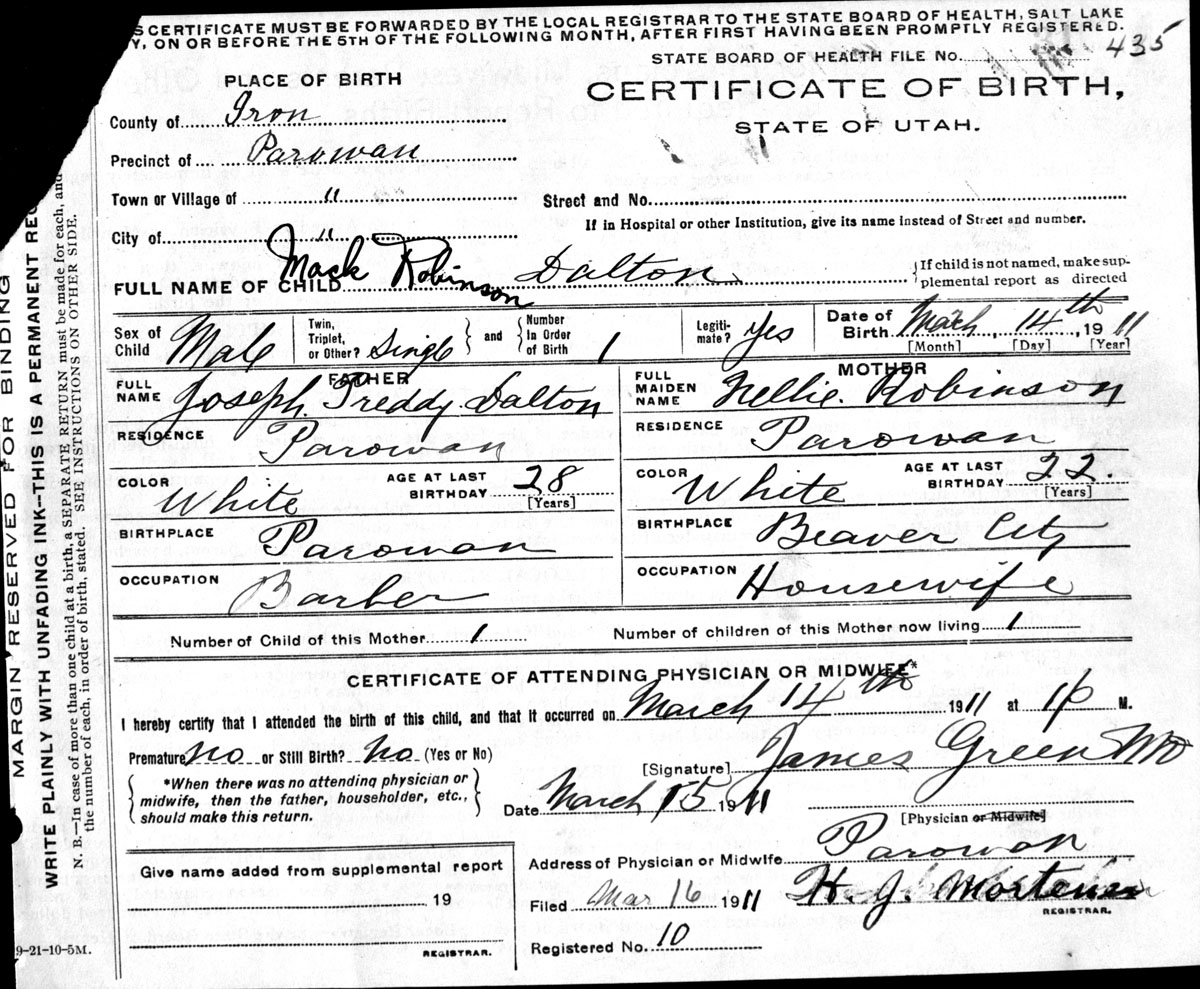 S CERTIFICATE MUST BE FORWARDED BY THE LOCAL REGISTRAR TO THE STATE BOARD OF HEALTH, SALT LAKE
Y, ON OR BEFORE THE 5TH OF THE FOLLOWING MONTH, AFTER FIRST HAVING BEEN PROMPTLY REGISTERED.
STATE BOARD OF HEALTH FILE No. 435
PLACE OF BIRTH
CERTIFICATE OF BIRTH,
STATE OF UTAH.
County of Iron
Precinct of Parowan
Town or Village of "
Street and No.
If in Hospital or other Institution, give its name instead of Street and number.
City of "
FULL NAME OF CHILD Mack Robinson Dalton
If child is not named, make supplemental report as directed
Sex of Child Male
Twin, Triplet, or Other? Single
and
Number In Order of Birth 1
Legitimate? Yes
Date of Birth March, 14th, 1911
[Month] [Day] [Year]
FATHER
FULL NAME Joseph. Treddy. Dalton
RESIDENCE Parowan
COLOR White
AGE AT LAST BIRTHDAY 28
[Years]
BIRTHPLACE Parowan
OCCUPATION Barber
MOTHER
FULL MAIDEN NAME Nellie. Robinson
RESIDENCE Parowan
COLOR White
AGE AT LAST BIRTHDAY 22.
[Years]
BIRTHPLACE Beaver City
OCCUPATION Housewife
Number of Child of this Mother 1
Number of children of this Mother now living 1
CERTIFICATE OF ATTENDING PHYSICIAN OR MIDWIFE*
I hereby certify that I attended the birth of this child, and that it occurred on March 14th 1911 at 1 P M.
Premature no or Still Birth? No (Yes or No)
*When there was no attending physician or
midwife, then the father, householder, etc.,
should make this return.
[Signature] James Green MD
Date March 15 1911
[Physician or Midwife]
Address of Physician or Midwife Parowan
Give name added from supplemental report
19
REGISTRAR.
Filed Mar 16 1911
H. J. Mortensen
REGISTRAR.
Registered No. 10
9-21-10-5M.
MARGIN RESERVED FOR BINDING
WRITE PLAINLY WITH UNFADING INK—THIS IS A PERMANENT REC
N. B.—In case of more than one child at a birth, a SEPARATE RETURN must be made for each, and
the number of each, in order of birth, stated. SEE INSTRUCTIONS ON OTHER SIDE.